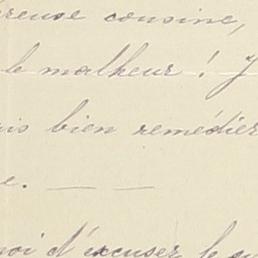 reuse cousine,
le malheur ! J
is bien remédier
e. — —
oi d'excuser le